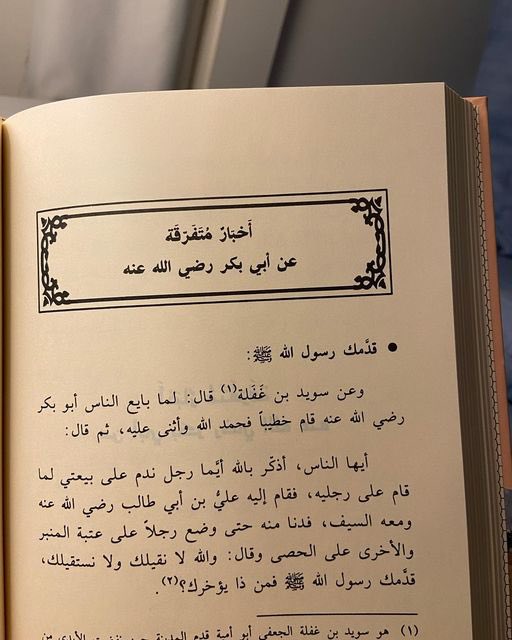 أَخبَارٌ مُتَفَرِّقَة
عن أبي بكر رضي الله عنه
● قدَّمك رسول الله ﷺ:
وعن سويد بن غَفَلة(١) قال: لما بايع الناس أبو بكر
رضي الله عنه قام خطيباً فحمد الله وأثنى عليه، ثم قال:
أيها الناس، أذكّر بالله أيَّما رجل ندم على بيعتي لما
قام على رجليه، فقام إليه عليُّ بن أبي طالب رضي الله عنه
ومعه السيف، فدنا منه حتى وضع رجلاً على عتبة المنبر
والأخرى على الحصى وقال: والله لا نقيلك ولا نستقيلك،
قدَّمك رسول الله ﷺ فمن ذا يؤخرك؟(٢).
(١) هو سويد بن غفلة الجعفي أبو أمية قدم المدينة حين